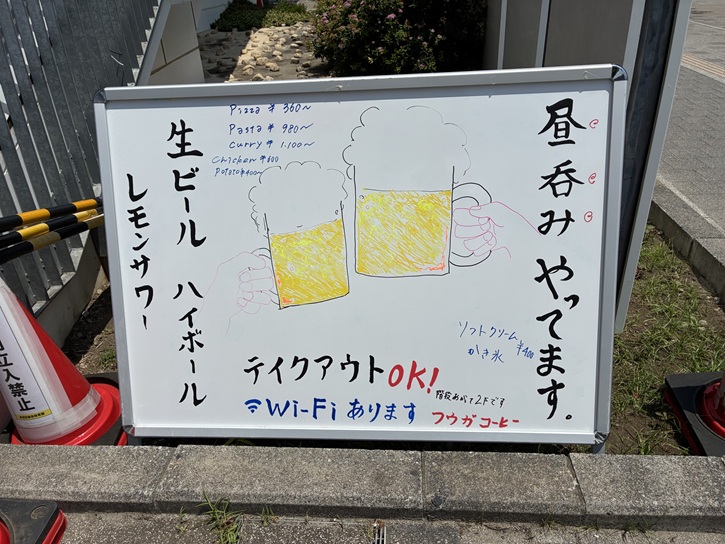 昼呑みやってます。
生ビール ハイボール
レモンサワー
Pizza ¥360〜
Pasta ¥980〜
Curry ¥1,100〜
Chicken ¥600
Potato ¥400〜
ソフトクリーム
かき氷 ¥400
テイクアウトOK!
階段あがって2Fです
Wi-Fiあります
フウガコーヒー
立入禁止